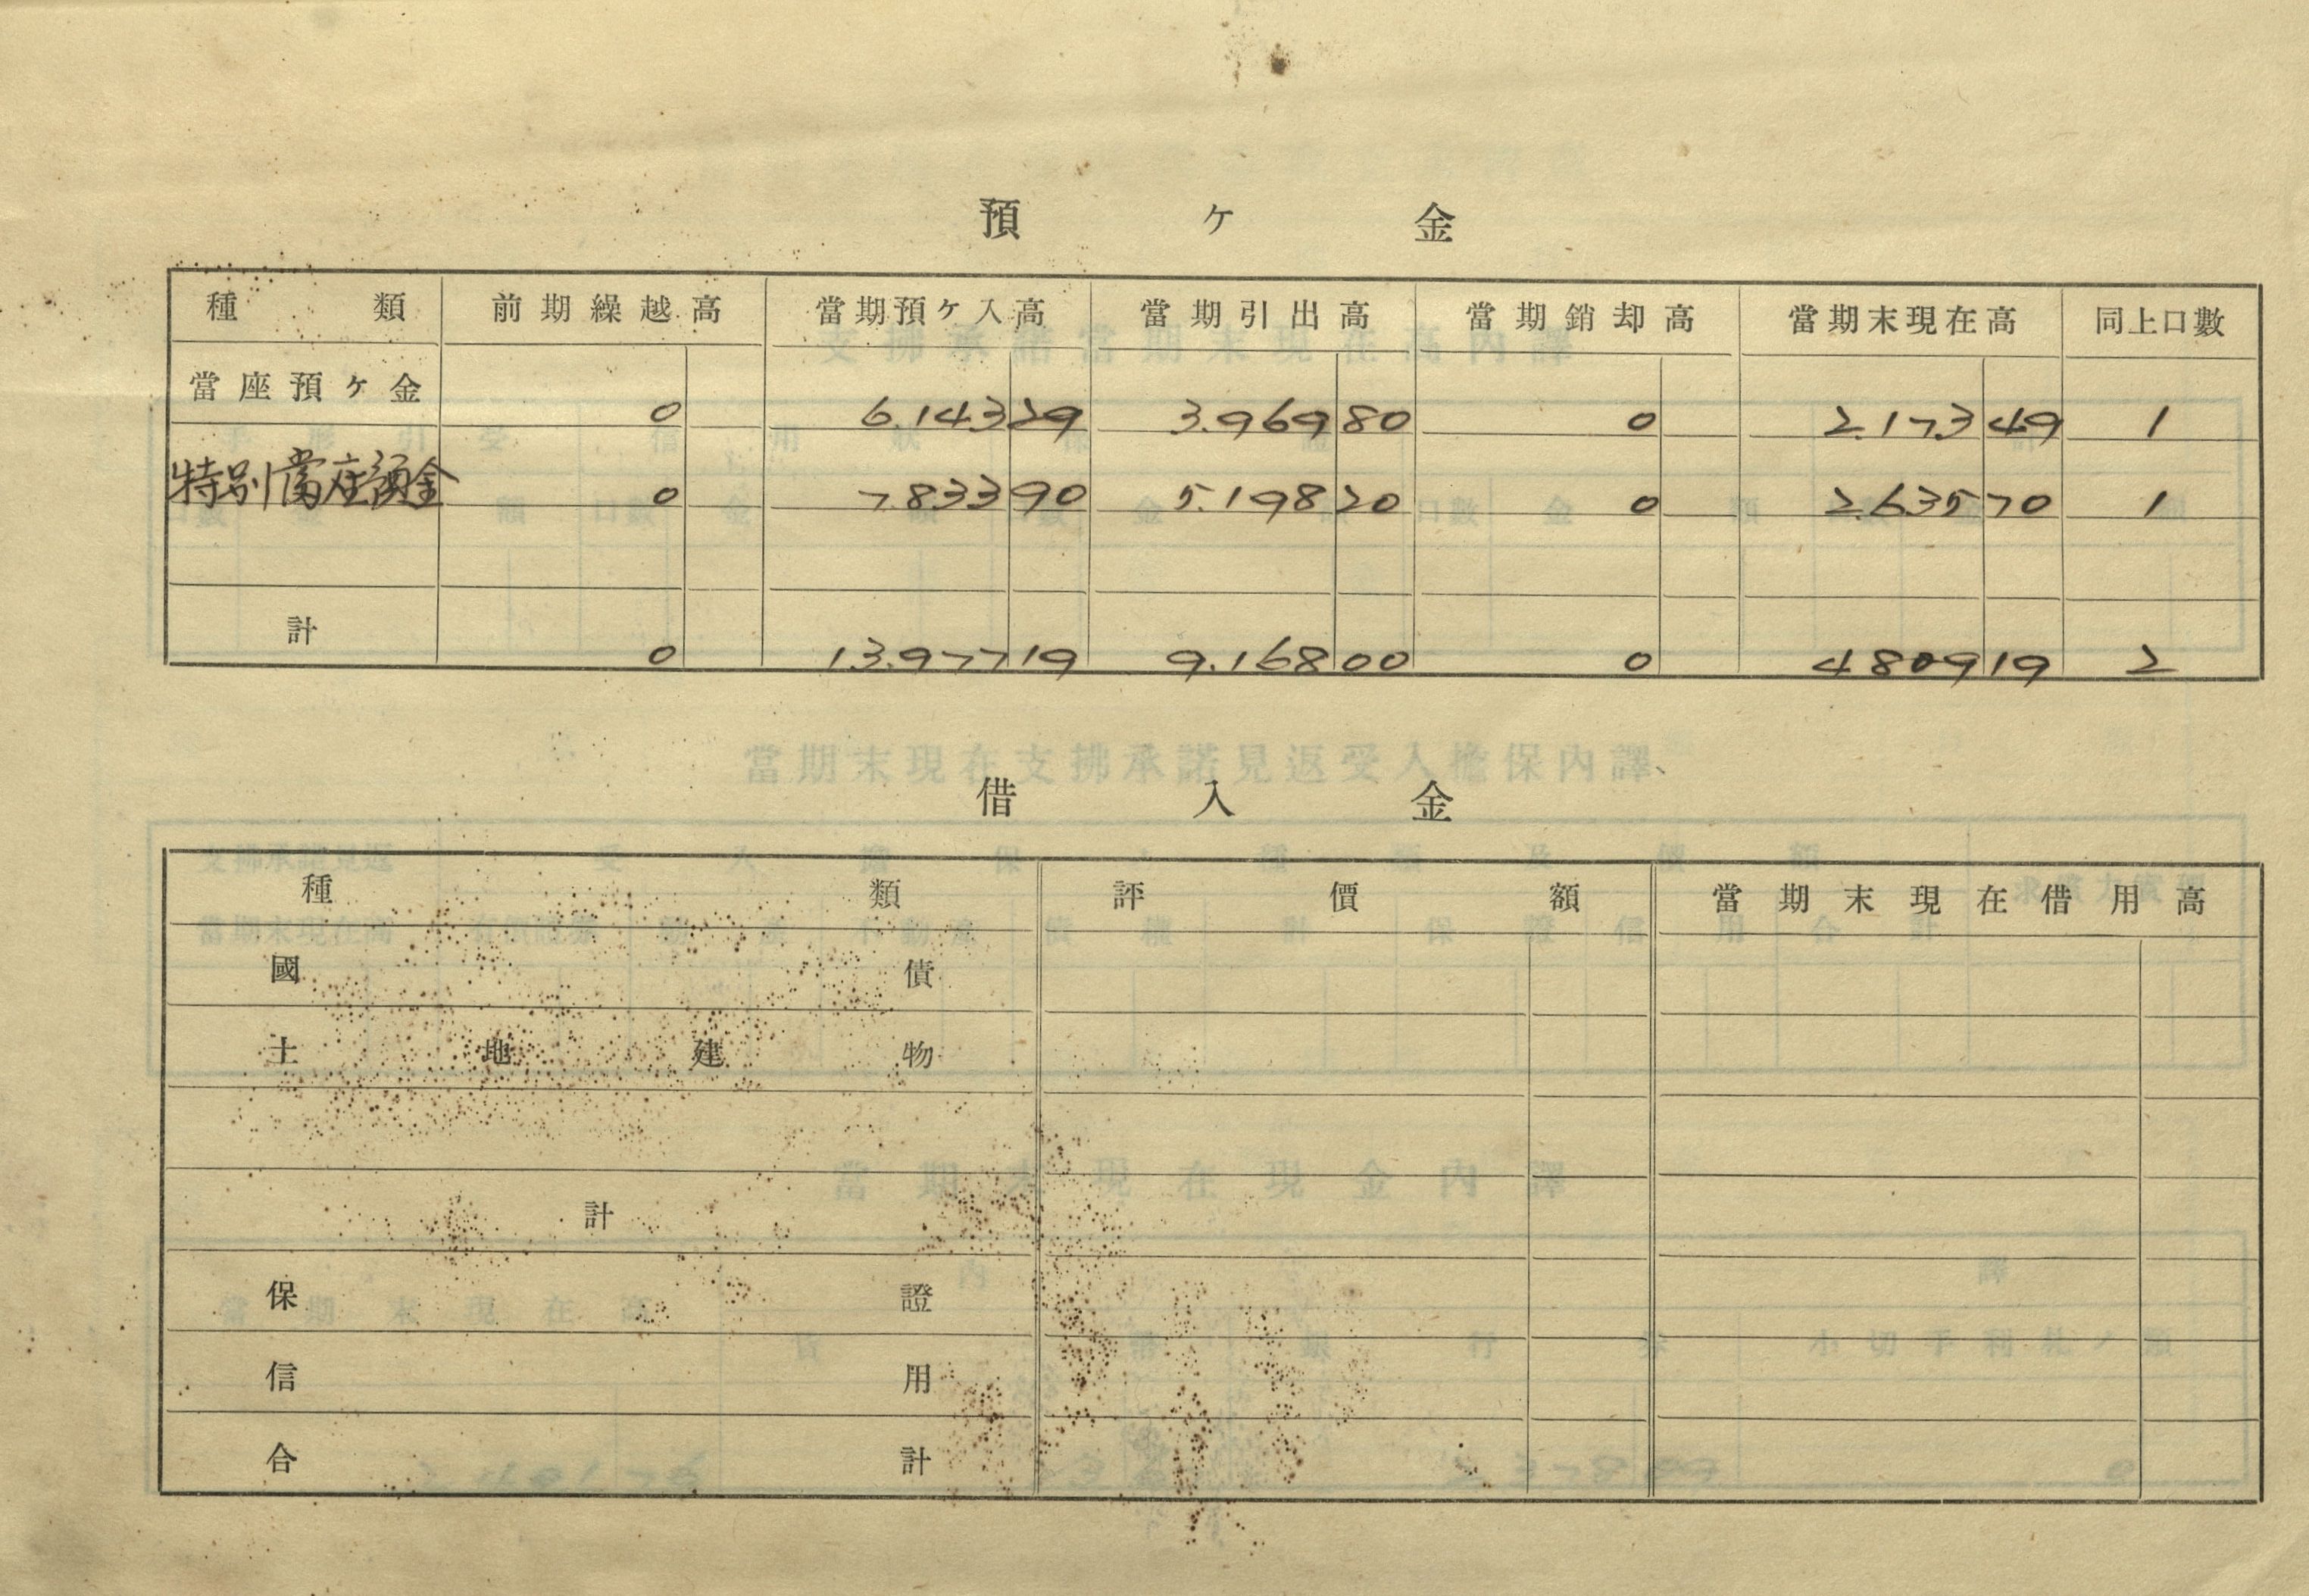 預ケ金
種類 前期繰越高 當期預ケ入高 當期引出高 當期銷却高 當期末現在高 同上口數
當座預ケ金 0 6.143 29 3.969 80 0 2.173 49 1
特別當座預金 0 7.833 90 5.198 20 0 2.635 70 1
計 0 13.977 19 9.168 00 0 4809 19 2
借入金
種類 評價額 當期末現在借用高
國債
土地建物
計
保證
信用
合計